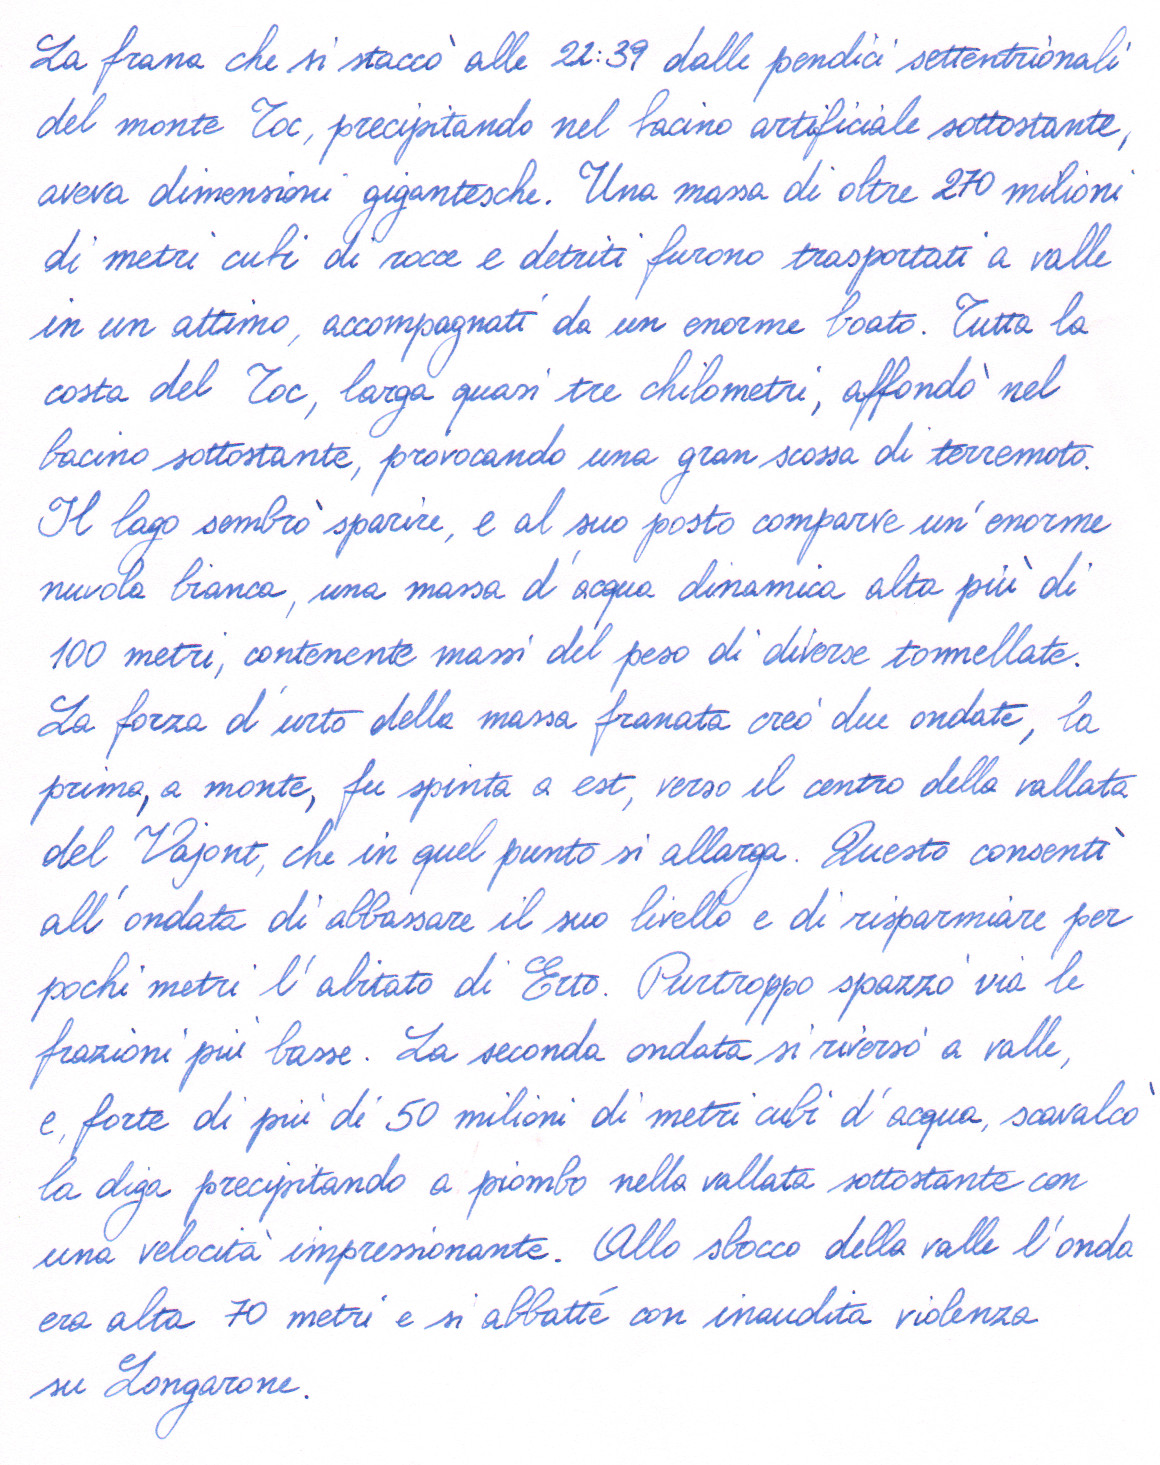 La frana che si staccò alle 22:39 dalle pendici settentrionali
del monte Toc, precipitando nel bacino artificiale sottostante,
aveva dimensioni gigantesche. Una massa di oltre 270 milioni
di metri cubi di rocce e detriti furono trasportati a valle
in un attimo, accompagnati da un enorme boato. Tutta la
costa del Toc, larga quasi tre chilometri, affondò nel
bacino sottostante, provocando una gran scossa di terremoto.
Il lago sembrò sparire, e al suo posto comparve un'enorme
nuvola bianca, una massa d'acqua dinamica alta più di
100 metri, contenente massi del peso di diverse tonnellate.
La forza d'urto della massa franata creò due ondate, la
prima, a monte, fu spinta a est, verso il centro della vallata
del Vajont, che in quel punto si allarga. Questo consentì
all'ondata di abbassare il suo livello e di risparmiare per
pochi metri l'abitato di Erto. Purtroppo spazzò via le
frazioni più basse. La seconda ondata si riversò a valle,
e, forte di più di 50 milioni di metri cubi d'acqua, scavalcò
la diga precipitando a piombo nella vallata sottostante con
una velocità impressionante. Allo sbocco della valle l'onda
era alta 70 metri e si abbatté con inaudita violenza
su Longarone.